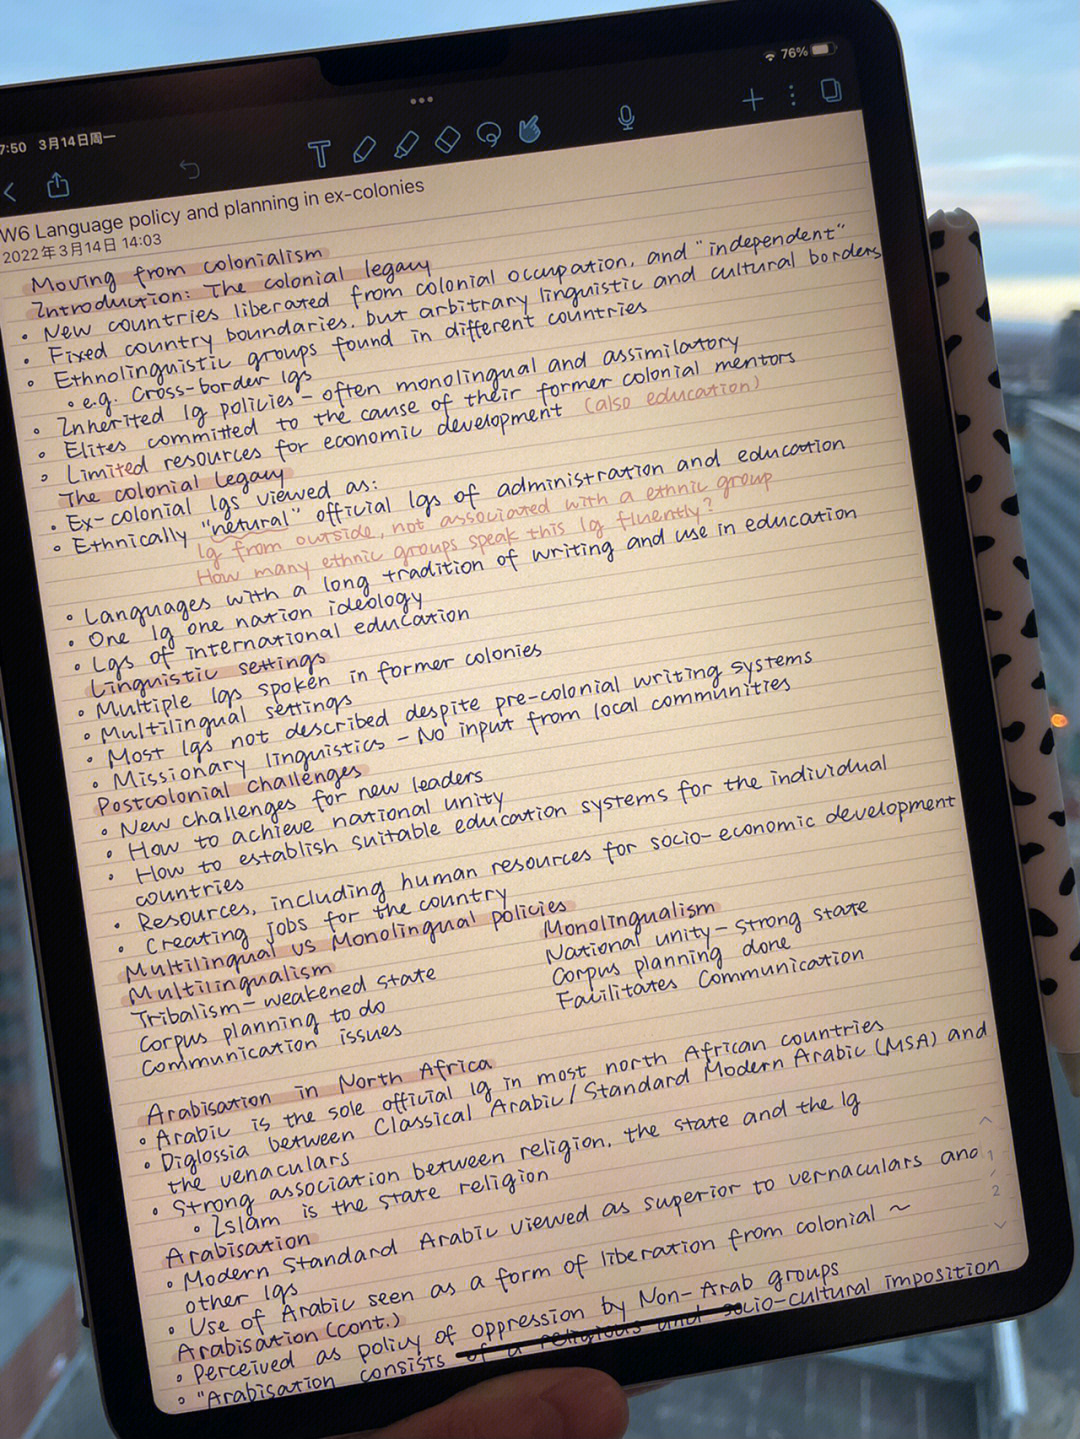 7:50 3月14日周一
76%
W6 Language policy and planning in ex-colonies
2022年3月14日 14:03
Moving from colonialism
Introduction: The colonial legacy
• New countries liberated from colonial occupation, and "independent"
• Fixed country boundaries, but arbitrary linguistic and cultural borders
• Ethnolinguistic groups found in different countries
• e.g. Cross-border lgs
• Inherited lg policies - often monolingual and assimilatory
• Elites committed to the cause of their former colonial mentors
• Limited resources for economic development (also education)
The colonial legacy
• Ex-colonial lgs viewed as:
• Ethnically "netural" official lgs of administration and education
lg from outside, not associated with a ethnic group
How many ethnic groups speak this lg fluently?
• Languages with a long tradition of writing and use in education
• One lg one nation ideology
• Lgs of international education
Linguistic settings
• Multiple lgs spoken in former colonies
• Multilingual settings
• Most lgs not described despite pre-colonial writing systems
• Missionary linguistics - No input from local communities
Postcolonial challenges
• New challenges for new leaders
• How to achieve national unity
• How to establish suitable education systems for the individual
countries
• Resources, including human resources for socio-economic development
• Creating jobs for the country
Multilingual vs Monolingual policies
Multilingualism
Tribalism - weakened state
Corpus planning to do
Communication issues
Monolingualism
National unity - strong state
Corpus planning done
Facilitates Communication
Arabisation in North Africa
• Arabic is the sole official lg in most north African countries
• Diglossia between Classical Arabic/Standard Modern Arabic (MSA) and
the venaculars
• Strong association between religion, the state and the lg
• Islam is the state religion
Arabisation
• Modern Standard Arabic viewed as superior to vernaculars and
other lgs
• Use of Arabic seen as a form of liberation from colonial ~
Arabisation (cont.)
• Perceived as policy of oppression by Non-Arab groups
• "Arabisation consists of a religious and socio-cultural imposition
1
/
2